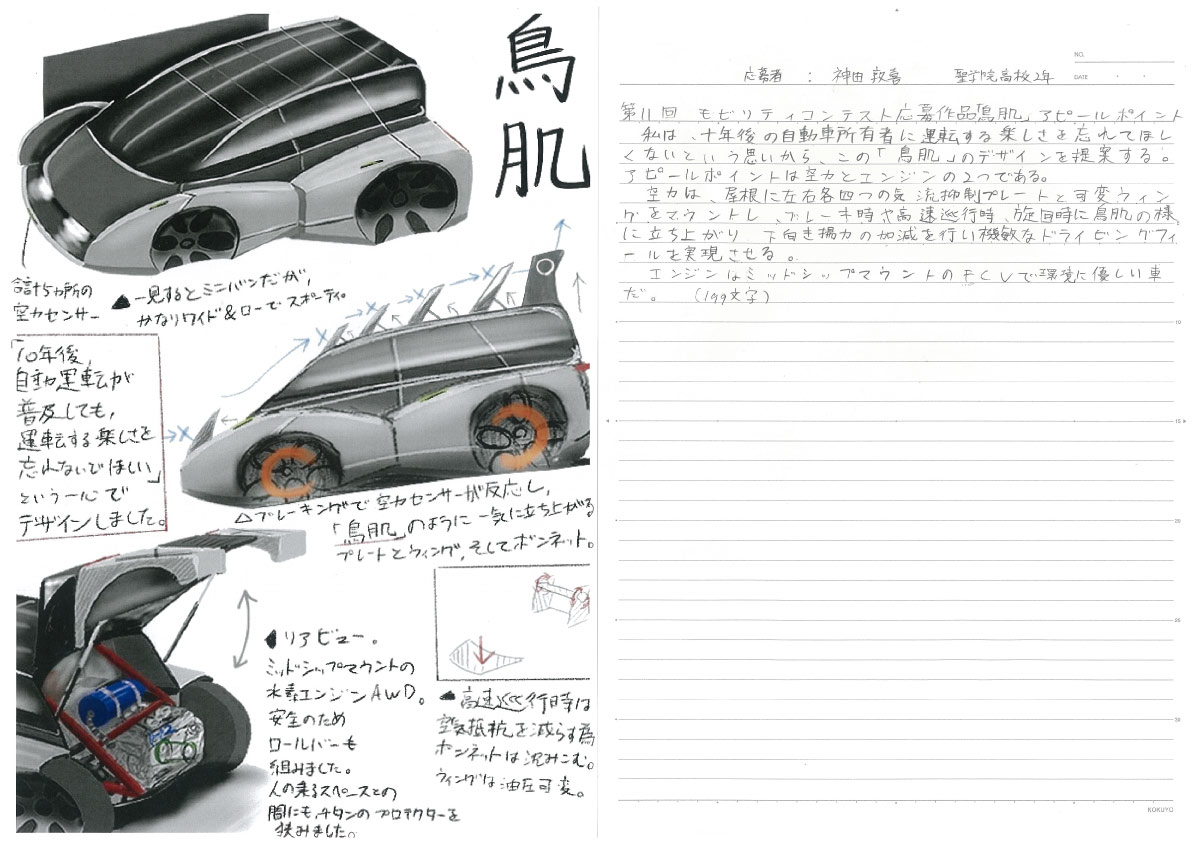 鳥
肌
合計5ヵ所の
空力センサー
▲一見するとミニバンだが、
かなりワイド&ローでスポーティ。
「10年後、
自動運転が
普及しても、
運転する楽しさを
忘れないでほしい」
という一心で
デザインしました。
△ブレーキングで空力センサーが反応し、
「鳥肌」のように一気に立ち上がる
プレートとウィング、そしてボンネット。
リアビュー。
ミッドシップマウントの
水素エンジンAWD。
安全のため
ロールバーも
組みました。
人の乗るスペースとの
間にも、チタンのプロテクターを
挟みました。
▲高速巡行時は
空気抵抗を減らす為
ボンネットは沈みこむ。
ウィングは油圧可変。
NO.
DATE
応募者 : 神田 聖学院高校2年
第11回 モビリティコンテスト応募作品「鳥肌」アピールポイント
私は、十年後の自動車所有者に運転する楽しさを忘れてほし
くないという思いから、この「鳥肌」のデザインを提案する。
アピールポイントは空力とエンジンの2つである。
空力は、屋根に左右各四つの気流抑制プレートと可変ウィン
グをマウントし、ブレーキ時や高速巡行時、旋回時に鳥肌の様
に立ち上がり、下向き揚力の加減を行い機敏なドライビングフィ
ールを実現させる。
エンジンはミッドシップマウントのFCVで環境に優しい車
だ。 (199文字)
10
15
20
25
30
KOKUYO